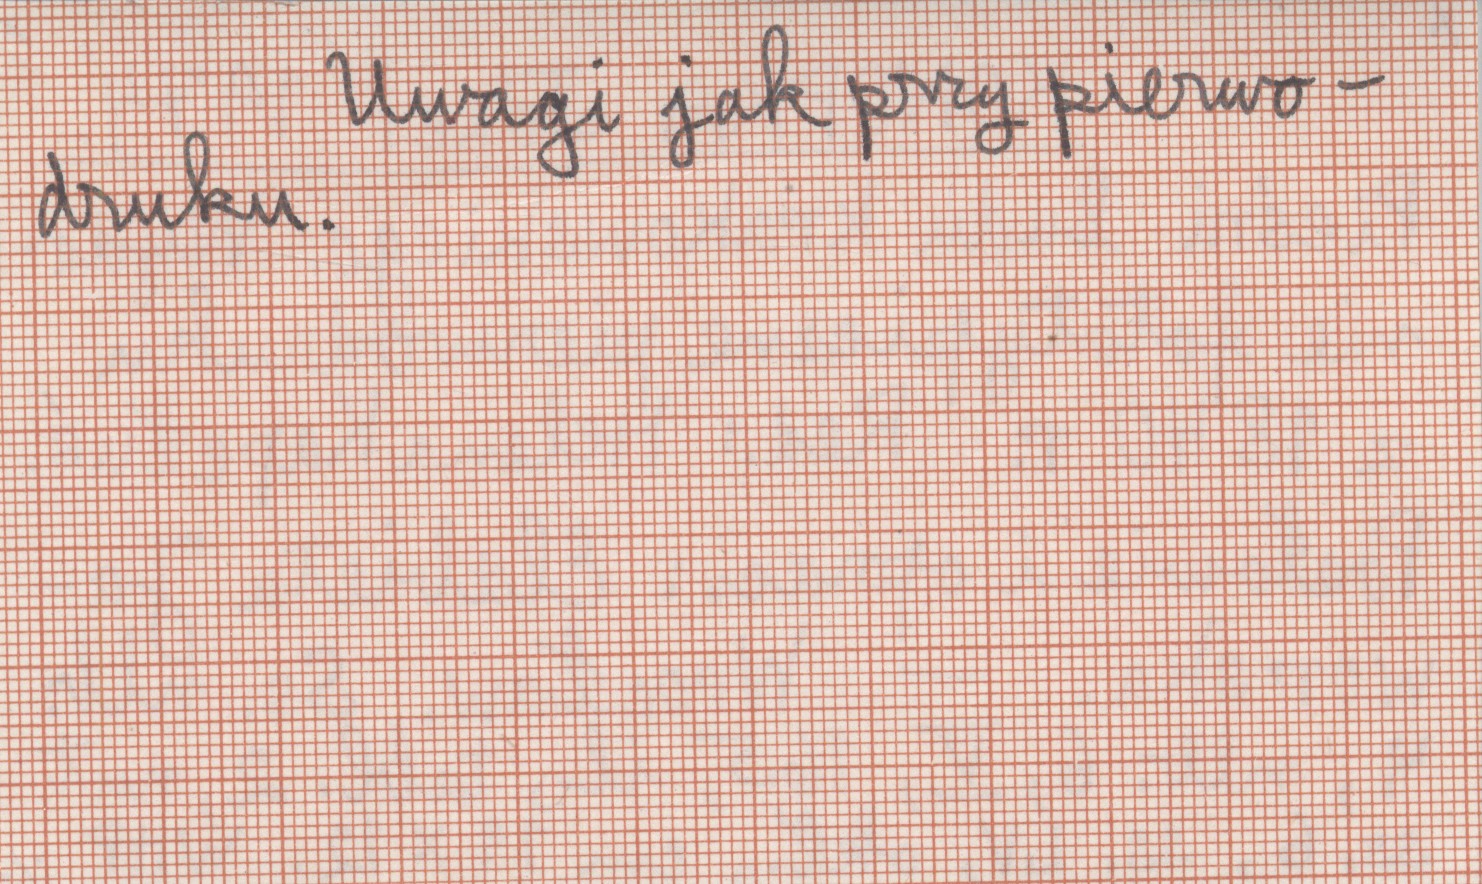 Uwagi jak przy pierwo-
druku.